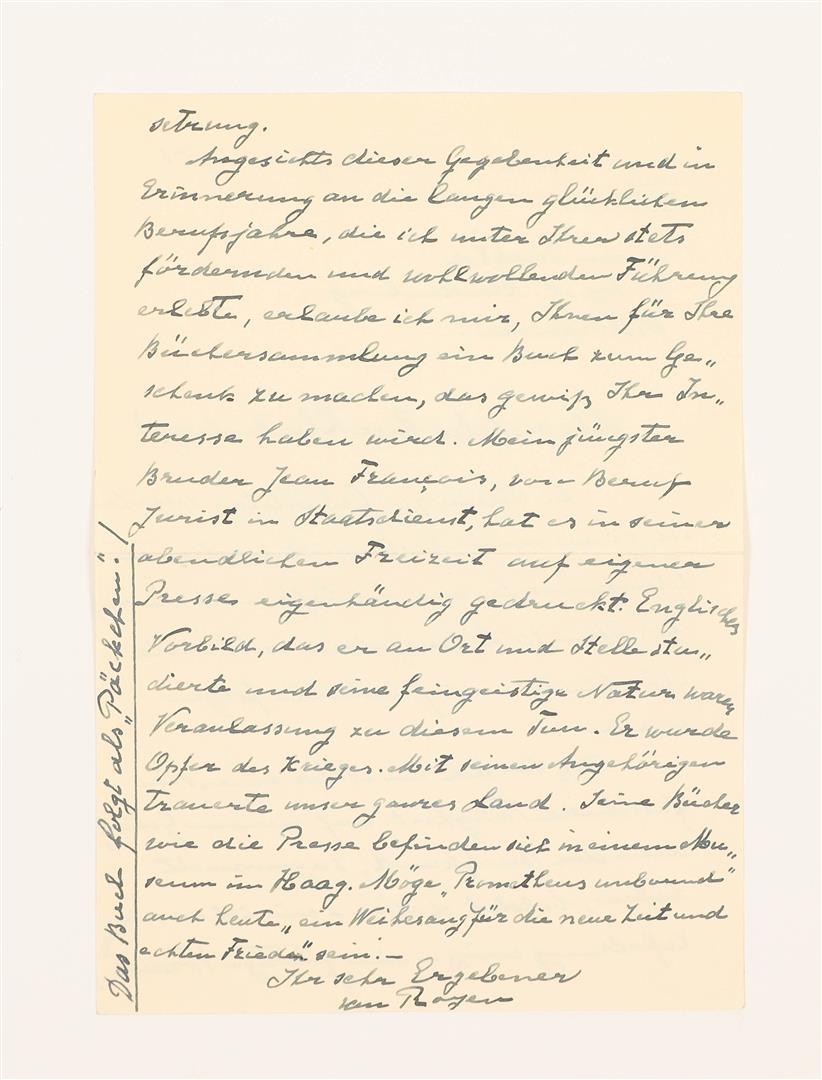 setzung.
Angesichts dieser Gegebenheit und in
Erinnerung an die langen glücklichen
Berufsjahre, die ich unter Ihrer stets
fördernden und wohlwollenden Führung
erlebte, erlaube ich mir, Ihnen für Ihre
Büchersammlung ein Buch zum Ge„
schenk zu machen, das gewiß Ihr In„
teresse haben wird. Mein jüngster
Bruder Jean François, von Beruf
Jurist im Staatsdienst, hat es in seiner
abendlichen Freizeit auf eigener
Presse eigenhändig gedruckt. Englisches
Vorbild, das er an Ort und Stelle stu„
dierte und seine feingeistige Natur waren
Veranlassung zu diesem Tun. Er wurde
Opfer des Krieges. Mit seinen Angehörigen
trauerte unser ganzes Land. Seine Bücher
wie die Presse befinden sich in einem Mu„
seum im Haag. Möge „Prometheus unbound"
auch heute „ein Weihesang für die neue Zeit und
echten Frieden" sein! –
Ihr sehr Ergebener
van Royen
Das Buch folgt als „Päckchen"!